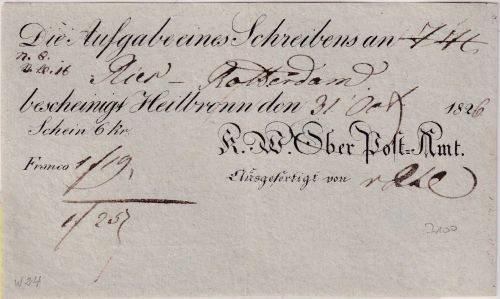 Die Aufgabe eines Schreibens an
Rotterdam
bescheinigt Heilbronn den 31 1826
Schein 6 kr.
K. W. Ober Post=Amt.
Franco 1/19
Ausgefertigt von
1/25
W24